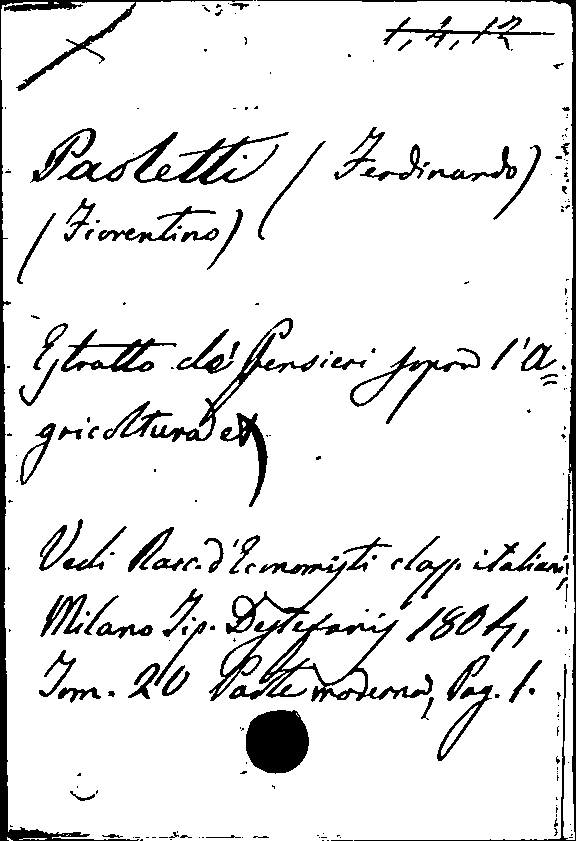 1, 4, 12
Paoletti (Ferdinando)
(Fiorentino)
Estratto de' Pensieri sopra l'A=
gricoltura
Vedi Racc. d'Economisti class. italiani,
Milano Tip. Destefanis 1804,
Tom. 20 Parte moderna, Pag. 1.